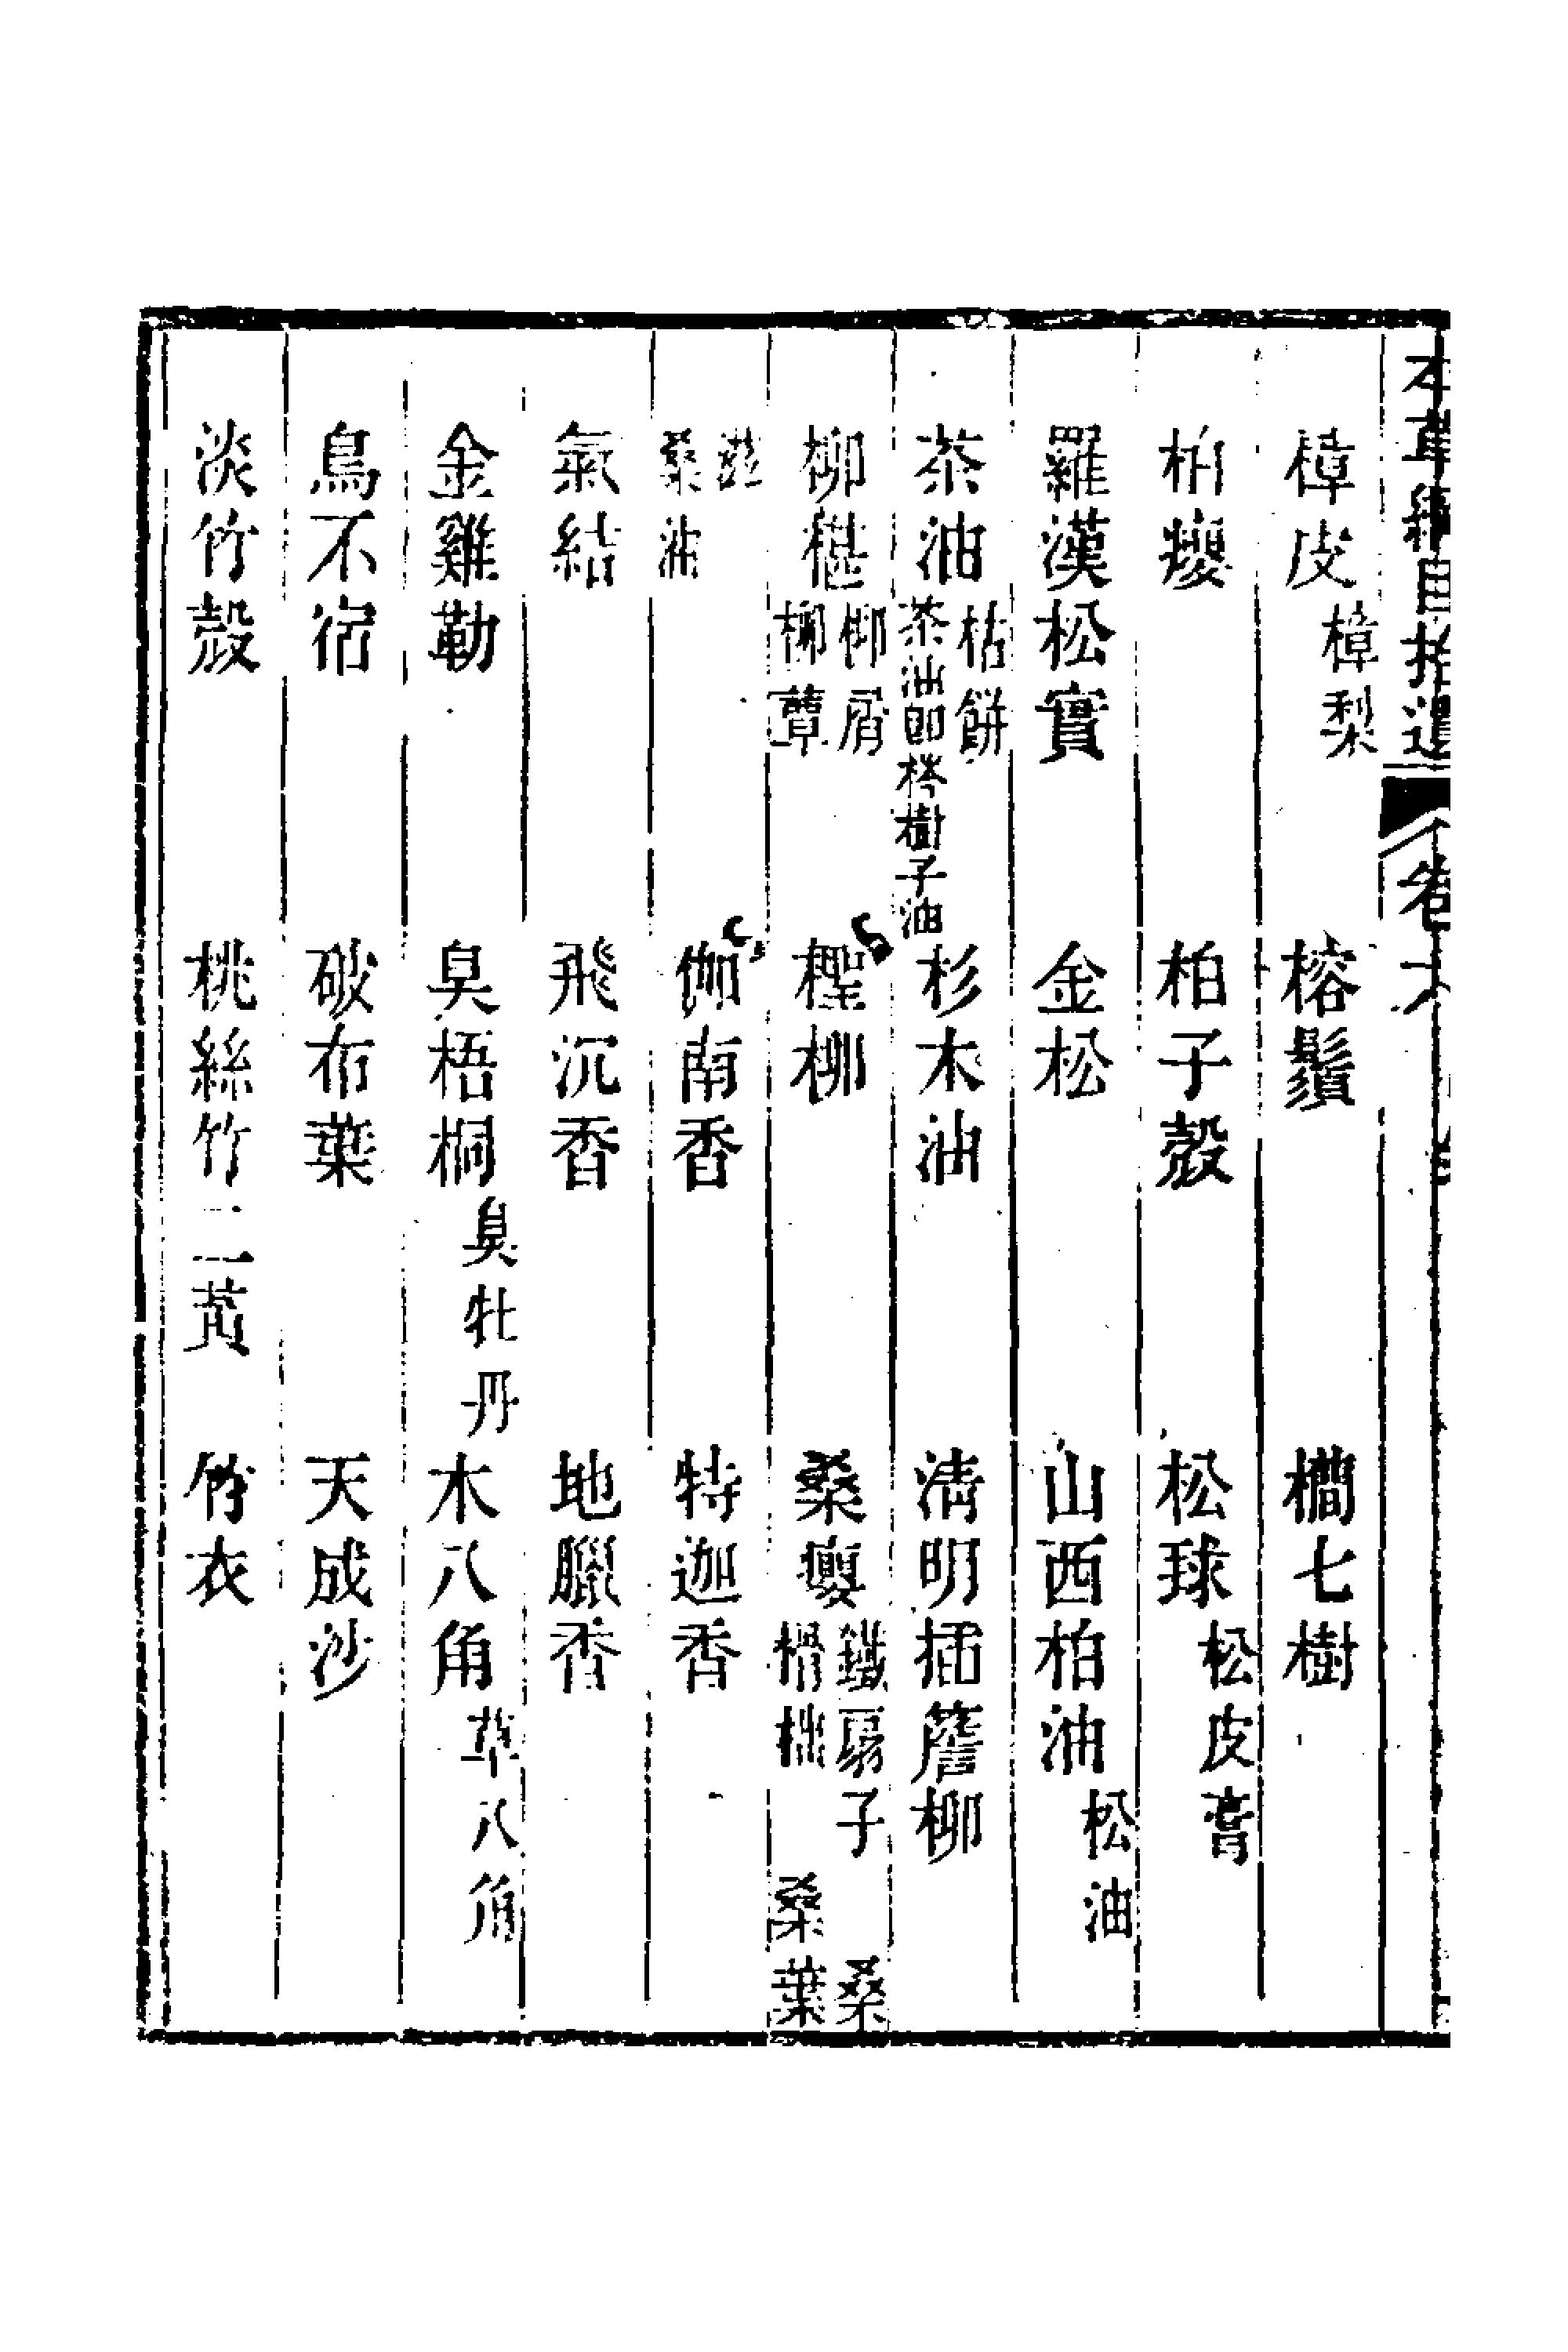 本草綱目拾遺 卷六
樟皮 樟梨 榕鬚 橺七樹
柏癭 柏子殼 松球 松皮膏
羅漢松實 金松 山西柏油 松油
茶油 枯餅 茶油即梣樹子油 杉木油 清明插簷柳
柳椹 柳屑 柳蕈 檉柳 桑癭 鐵扇子 桑 榾柮 桑葉
滋 桑油 伽南香 特迦香
氣結 飛沉香 地臘香
金雞勒 臭梧桐 臭牡丹 木八角 草八角
鳥不宿 破布葉 天成沙
淡竹殼 桃絲竹 竹衣